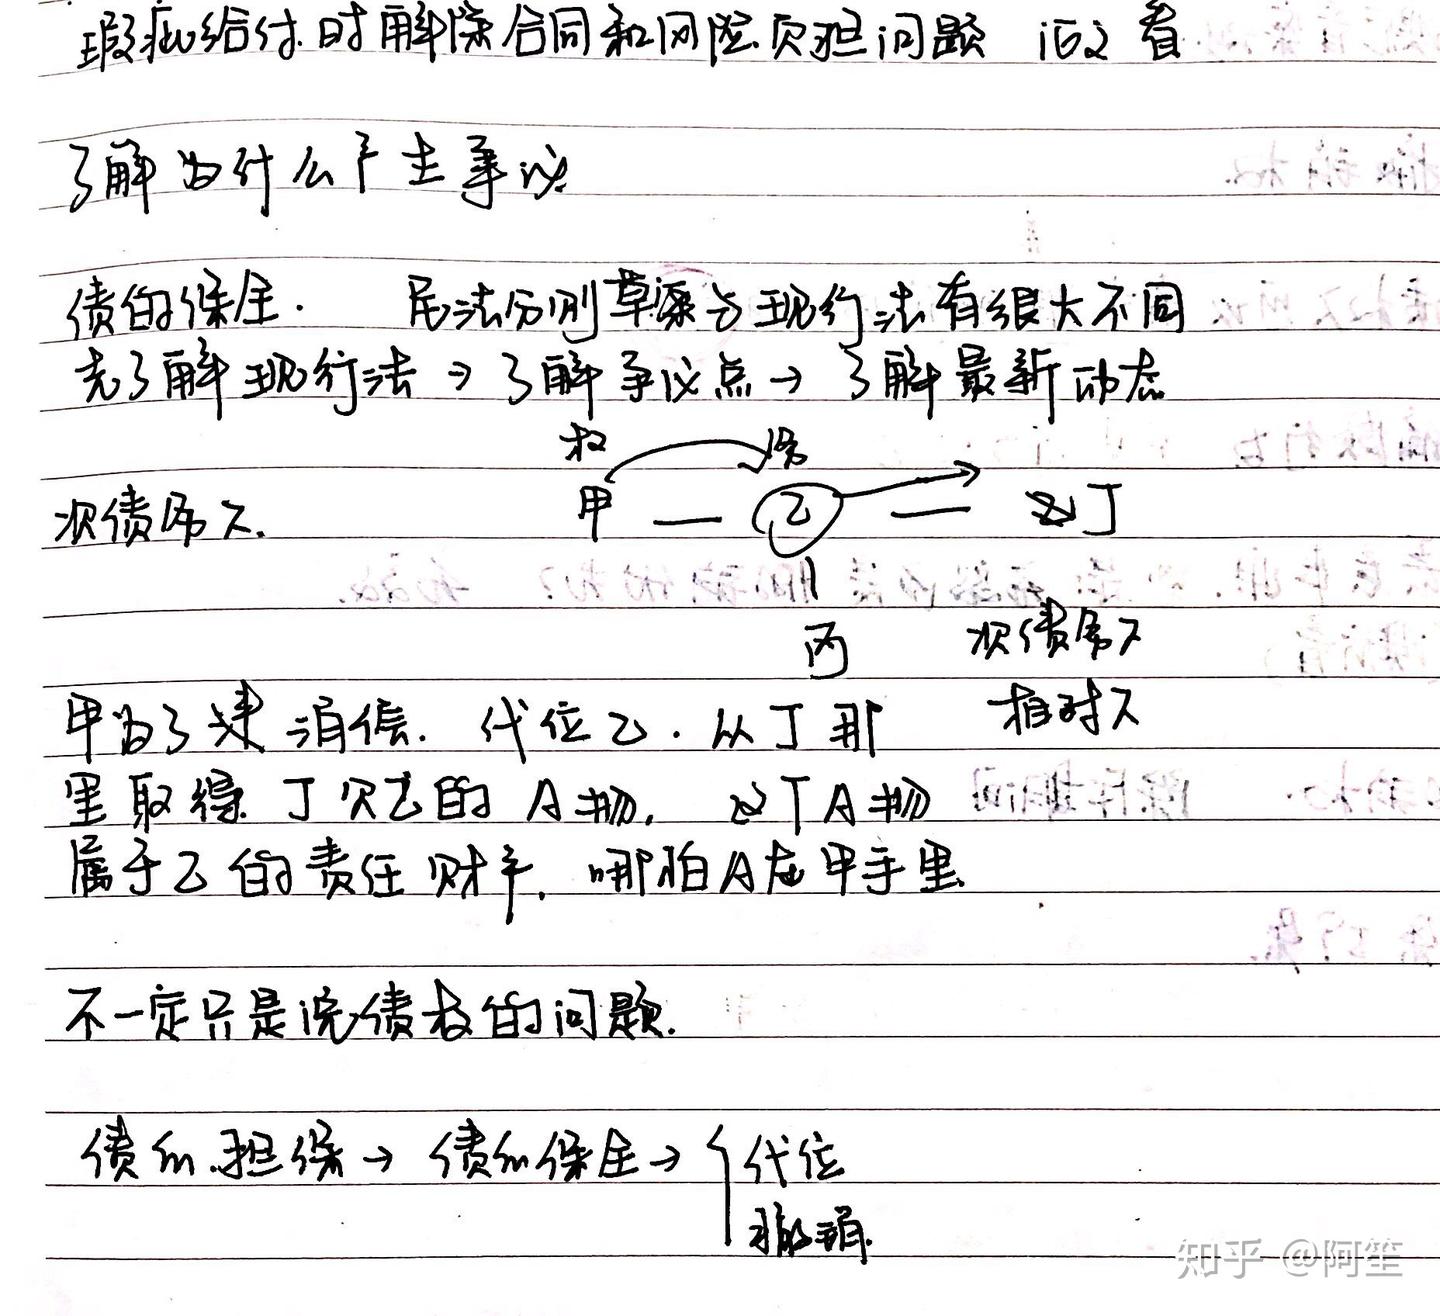 瑕疵给付时解除合同和风险负担问题 论文 看
了解为什么产生争议
债的保全. 民法分则草案与现行法有很大不同
先了解现行法→了解争议点→了解最新动态
权 债务
次债务人. 甲 — 乙 — 丁
丙 次债务人
相对人
甲为了 消债. 代位乙. 从丁那
里取得丁欠乙的A物, 这个A物
属于乙的责任财产, 哪怕A在甲手里
不一定只是说债权的问题.
债的担保→债的保全→{代位
撤销.
知乎 @阿笙